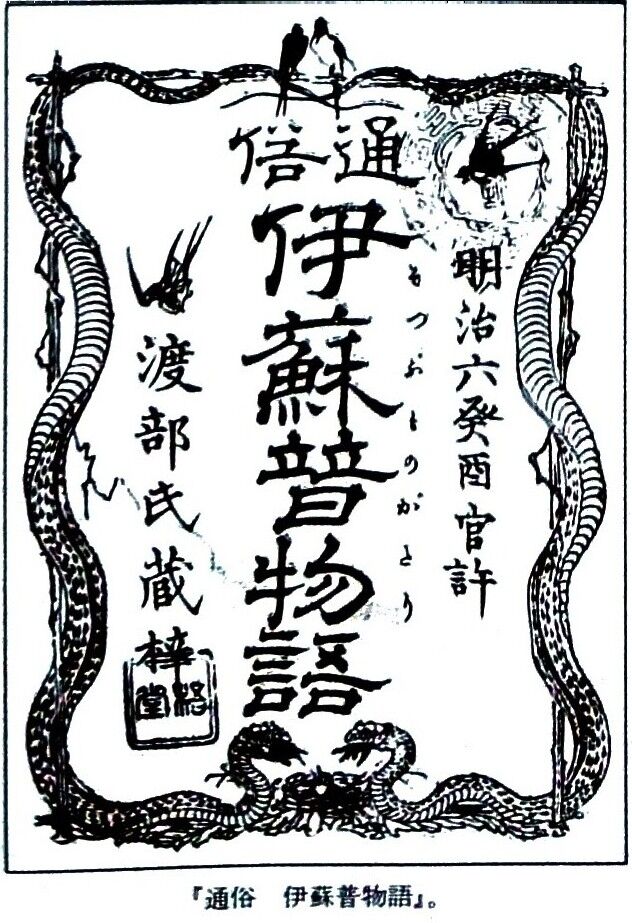 明治六癸酉官許
通俗
伊蘇普物語
いそつぷものがたり
渡部氏蔵梓
『通俗　伊蘇普物語』。